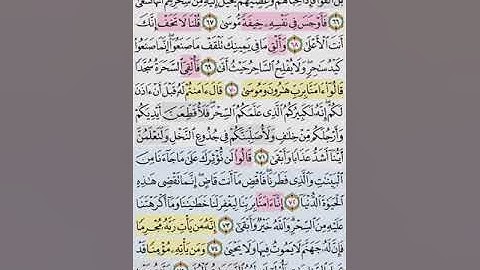 بَلْ أَلْقُوا۟ فَإِذَا حِبَالُهُمْ وَعِصِيُّهُمْ يُخَيَّلُ إِلَيْهِ مِن سِحْرِهِمْ أَنَّهَا تَسْعَىٰ
٦٦ فَأَوْجَسَ فِى نَفْسِهِۦ خِيفَةً مُّوسَىٰ ٦٧ قُلْنَا لَا تَخَفْ إِنَّكَ
أَنتَ ٱلْأَعْلَىٰ ٦٨ وَأَلْقِ مَا فِى يَمِينِكَ تَلْقَفْ مَا صَنَعُوٓا۟ إِنَّمَا صَنَعُوا۟
كَيْدُ سَٰحِرٍ وَلَا يُفْلِحُ ٱلسَّاحِرُ حَيْثُ أَتَىٰ ٦٩ فَأُلْقِىَ ٱلسَّحَرَةُ سُجَّدًا
قَالُوٓا۟ ءَامَنَّا بِرَبِّ هَٰرُونَ وَمُوسَىٰ ٧٠ قَالَ ءَامَنتُمْ لَهُۥ قَبْلَ أَنْ ءَاذَنَ
لَكُمْ إِنَّهُۥ لَكَبِيرُكُمُ ٱلَّذِى عَلَّمَكُمُ ٱلسِّحْرَ فَلَأُقَطِّعَنَّ أَيْدِيَكُمْ
وَأَرْجُلَكُم مِّنْ خِلَٰفٍ وَلَأُصَلِّبَنَّكُمْ فِى جُذُوعِ ٱلنَّخْلِ وَلَتَعْلَمُنَّ
أَيُّنَآ أَشَدُّ عَذَابًا وَأَبْقَىٰ ٧١ قَالُوا۟ لَن نُّؤْثِرَكَ عَلَىٰ مَا جَآءَنَا مِنَ
ٱلْبَيِّنَٰتِ وَٱلَّذِى فَطَرَنَا فَٱقْضِ مَآ أَنتَ قَاضٍ إِنَّمَا تَقْضِى هَٰذِهِ
ٱلْحَيَوٰةَ ٱلدُّنْيَآ ٧٢ إِنَّآ ءَامَنَّا بِرَبِّنَا لِيَغْفِرَ لَنَا خَطَٰيَٰنَا وَمَآ أَكْرَهْتَنَا
عَلَيْهِ مِنَ ٱلسِّحْرِ وَٱللَّهُ خَيْرٌ وَأَبْقَىٰٓ ٧٣ إِنَّهُۥ مَن يَأْتِ رَبَّهُۥ مُجْرِمًا
فَإِنَّ لَهُۥ جَهَنَّمَ لَا يَمُوتُ فِيهَا وَلَا يَحْيَىٰ ٧٤ وَمَن يَأْتِهِۦ مُؤْمِنًا قَدْ